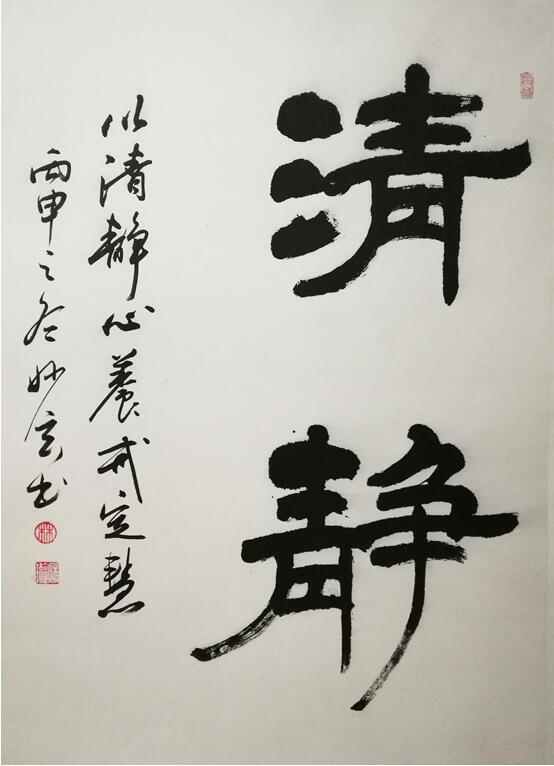 清静
以清静心养戒定慧
丙申之冬妙玄书